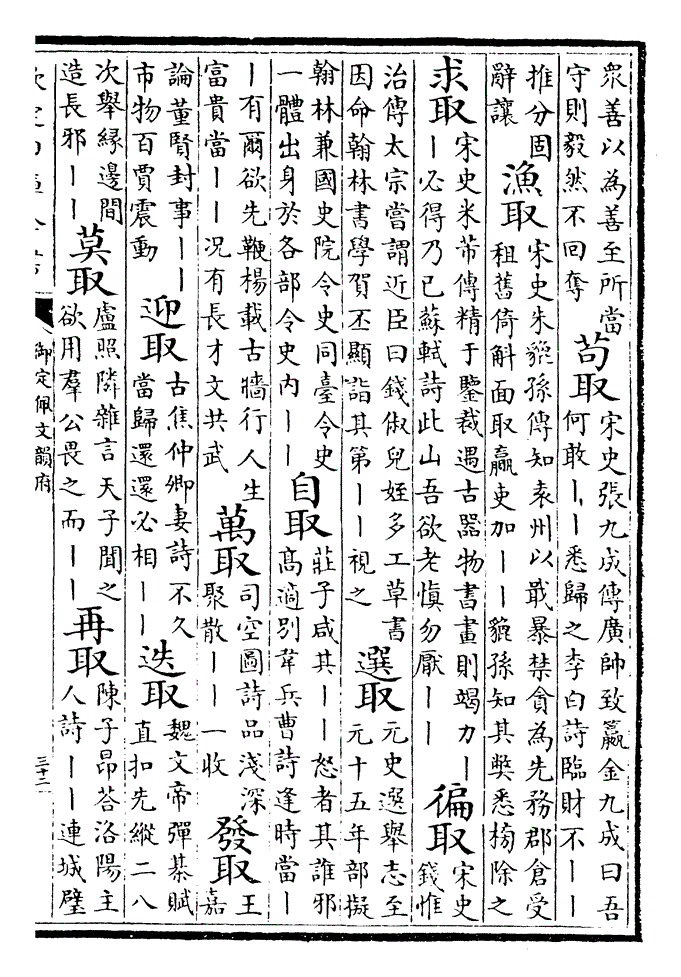 衆善以為善至所當
守則毅然不回奪
苟取
宋史張九成傳廣帥致羸金九成曰吾
何敢丨丨悉歸之李白詩臨財不丨丨
推分固
辭讓
漁取
宋史朱貔孫傳知袁州以戢暴禁貪為先務郡倉受
租舊倚斛面取贏吏加丨丨貔孫知其獘悉榜除之
求取
宋史米芾傳精于鑒裁遇古器物書畫則竭力丨
丨必得乃已蘇軾詩此山吾欲老慎勿厭丨丨
徧取
宋史
錢惟
治傳太宗嘗謂近臣曰錢俶兒姪多工草書
因命翰林書學賀丕顯詣其第丨丨視之
選取
元史選舉志至
元十五年部擬
翰林兼國史院令史同臺令史
一體出身於各部令史內丨丨
自取
莊子咸其丨丨怒者其誰邪
高適別韋兵曹詩逢時當丨
丨有爾欲先鞭楊載古牆行人生
富貴當丨丨况有長才文共武
萬取
司空圖詩品淺深
聚散丨丨一收
發取
王
嘉
論董賢封事丨丨
市物百賈震動
迎取
古焦仲卿妻詩不久
當歸還還必相丨丨
迭取
魏文帝彈棊賦
直扣先縱二八
次舉緣邊間
造長邪丨丨
莫取
盧照隣雜言天子聞之
欲用羣公畏之而丨丨
再取
陳子昂荅洛陽主
人詩丨丨連城璧
欽定四庫全書
御定佩文韻府
三十二